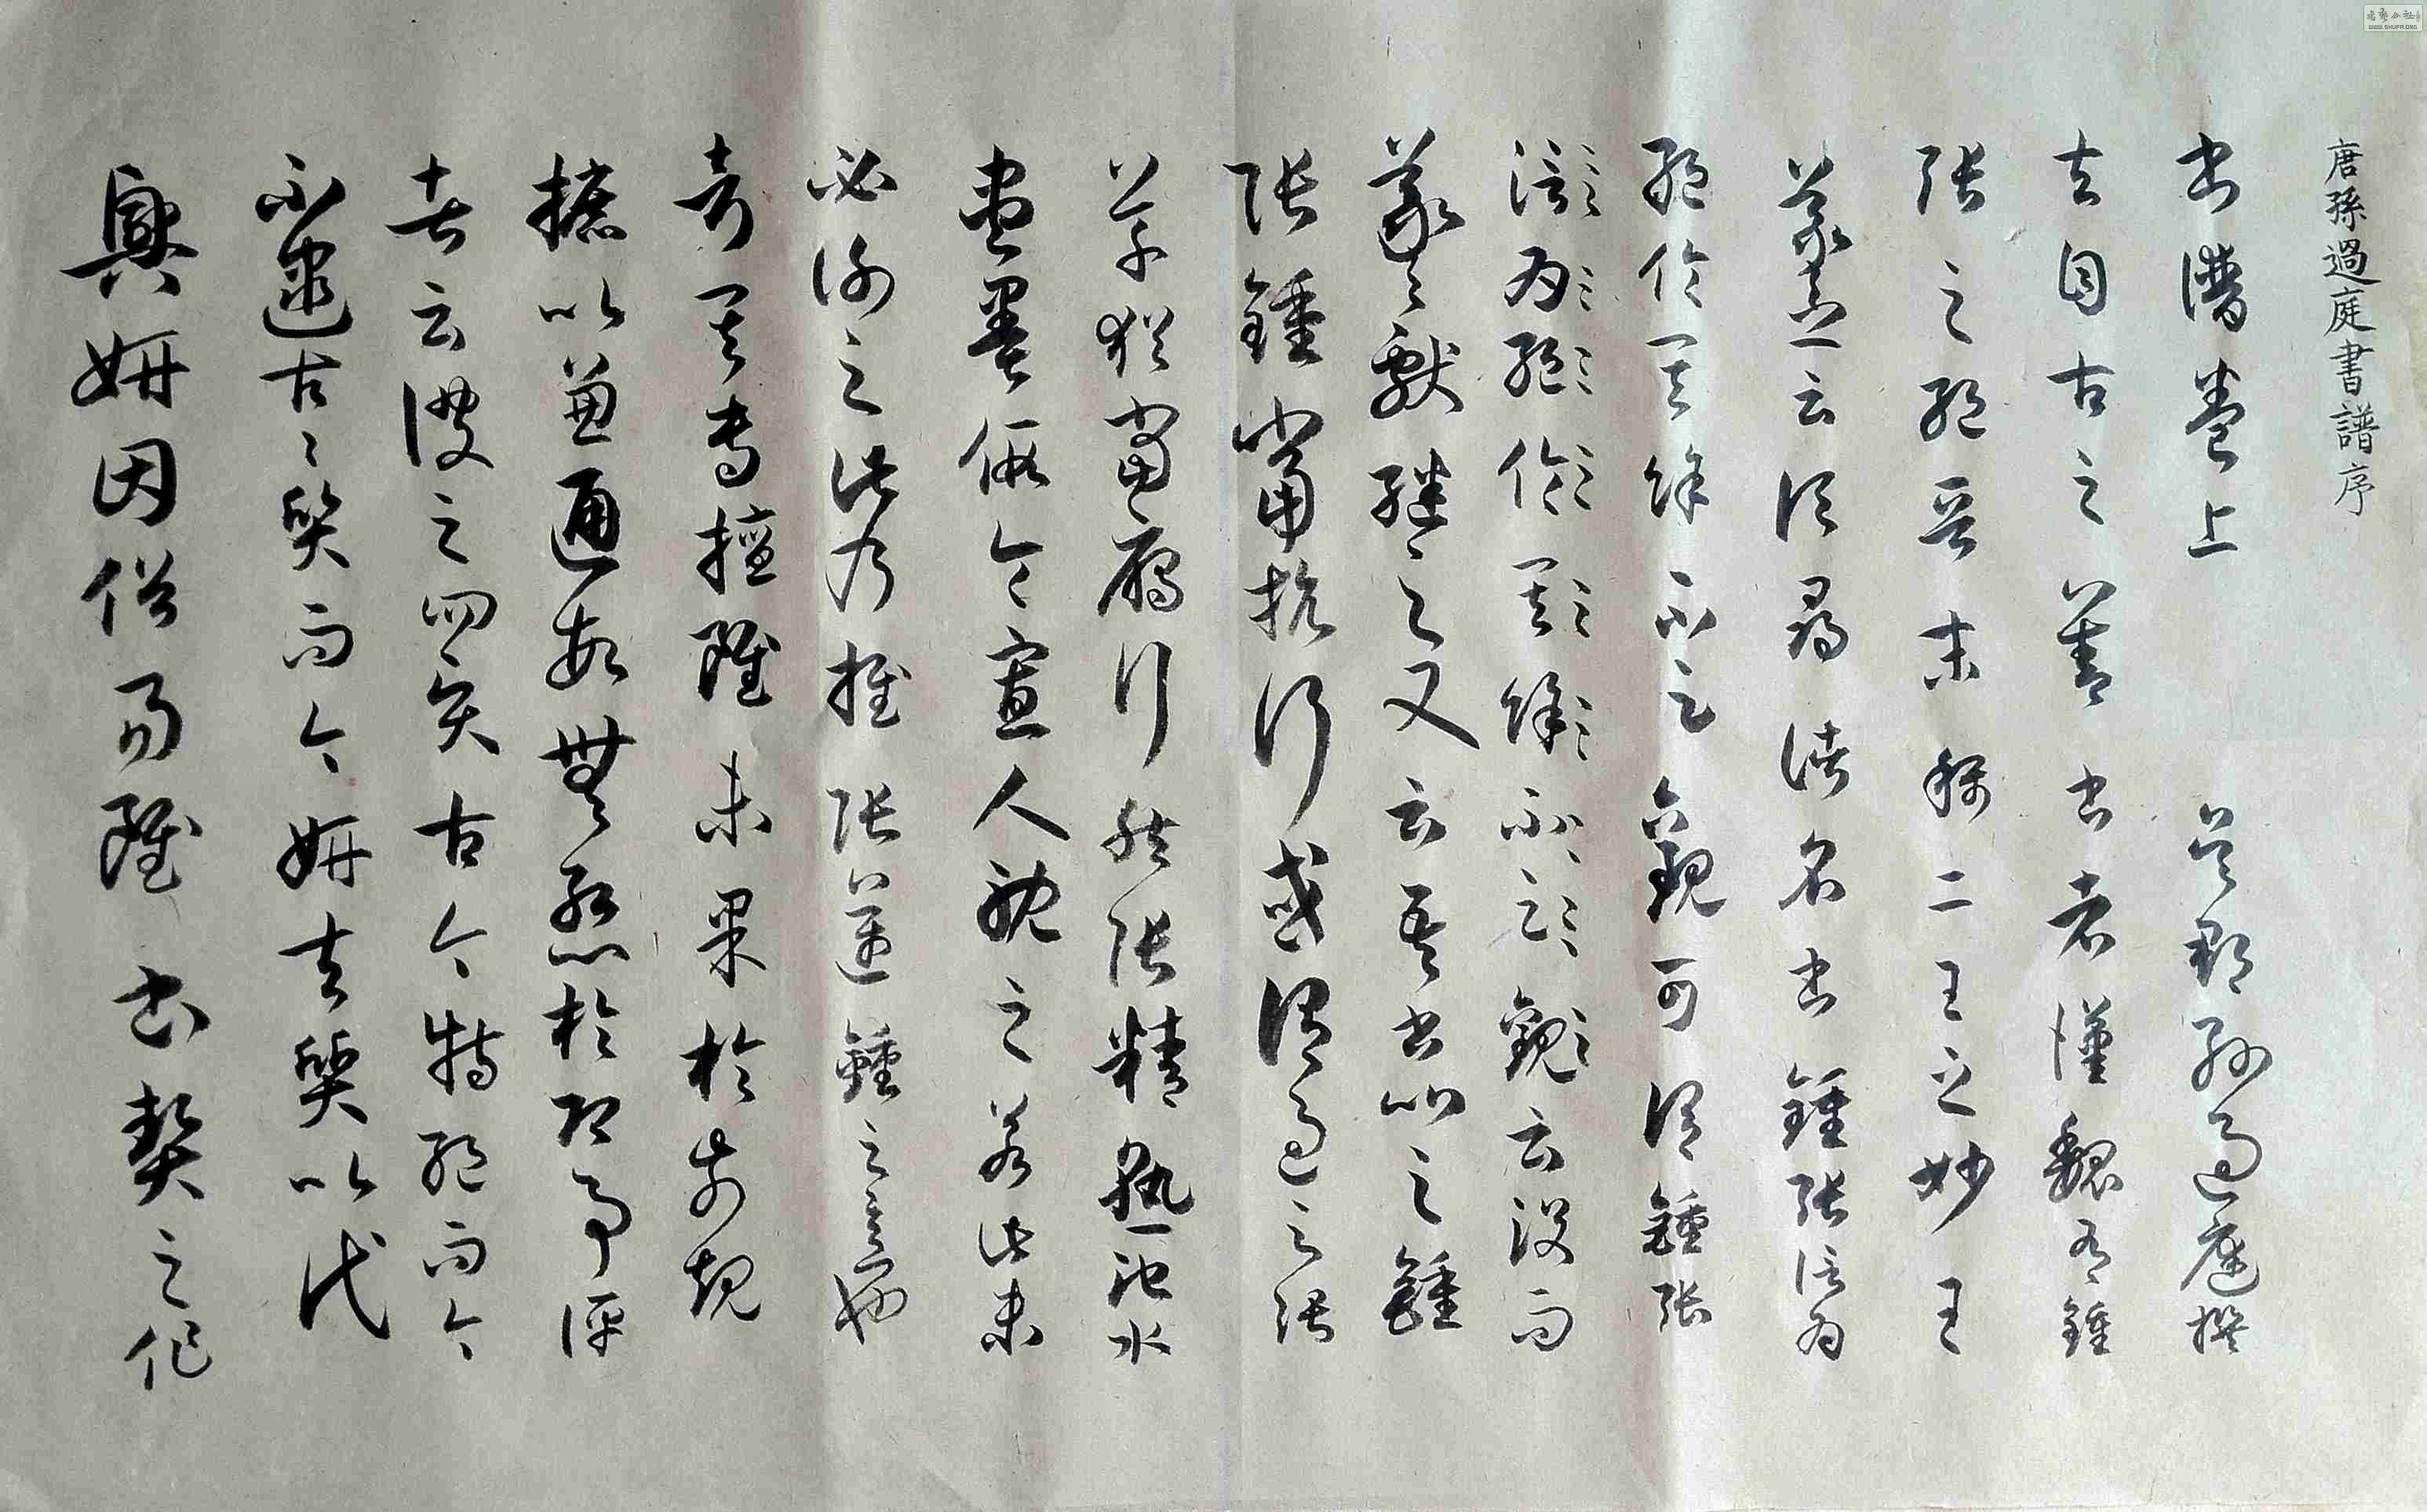 唐孫過庭書譜序
書譜卷上 吳郡孫過庭撰
夫自古之善書者漢魏有鍾
張之絕晉末稱二王之妙王
羲之云頃尋諸名書鍾張信為
絕倫其餘不足觀可謂鍾張
信為絕倫其餘不足觀云沒而
羲獻繼之又云吾書比之鍾
張鍾當抗行或謂過之張
草猶當鴈行然張精熟池水
盡墨假令寡人耽之若此未
必謝之此乃推張邁鍾之意也
考其專擅雖未果於前規
摭以兼通故無慙於即事評
者云彼之四賢古今特絕而今
不逮古〻質而今妍夫質以代
興妍因俗易雖書契之作
WWW.SHUFA.ORG